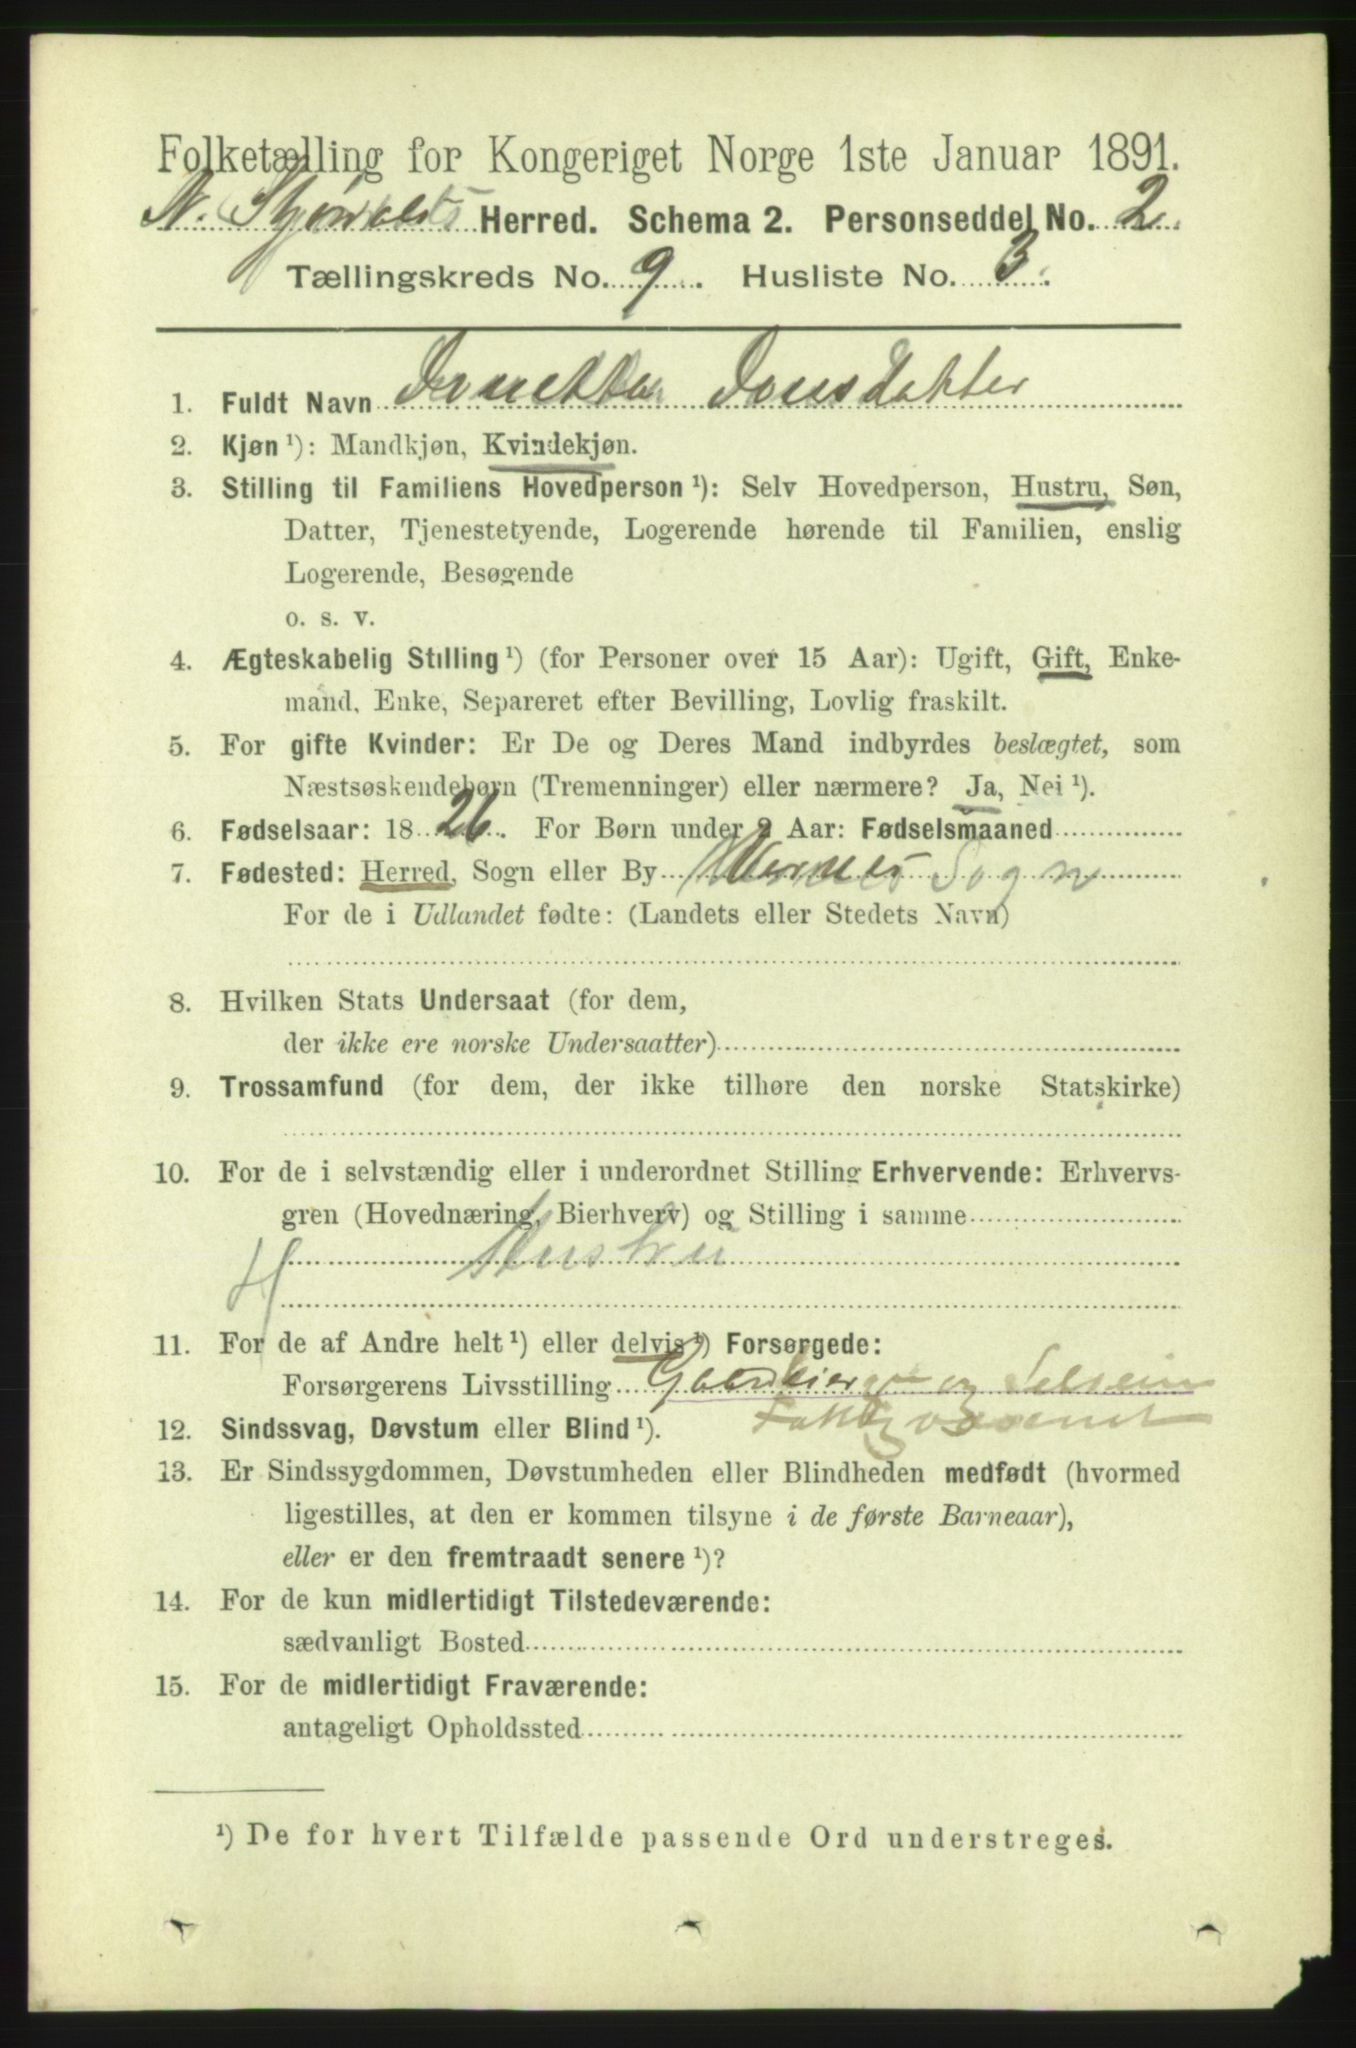 Folketælling for Kongeriget Norge 1ste Januar 1891.
N. Stjørdalens Herred. Schema 2. Personseddel No. 2.
Tællingskreds No. 9. Husliste No. 3.
1. Fuldt Navn Jonsdatter
2. Kjøn ¹): Mandkjøn, Kvindekjøn.
3. Stilling til Familiens Hovedperson ¹): Selv Hovedperson, Hustru, Søn,
Datter, Tjenestetyende, Logerende hørende til Familien, enslig
Logerende, Besøgende
o. s. v.
4. Ægteskabelig Stilling ¹) (for Personer over 15 Aar): Ugift, Gift, Enke-
mand, Enke, Separeret efter Bevilling, Lovlig fraskilt.
5. For gifte Kvinder: Er De og Deres Mand indbyrdes beslægtet, som
Næstsøskendebørn (Tremenninger) eller nærmere? Ja, Nei ¹).
6. Fødselsaar: 1826. For Børn under 2 Aar: Fødselsmaaned
7. Fødested: Herred, Sogn eller By Værnes Sogn
For de i Udlandet fødte: (Landets eller Stedets Navn)
8. Hvilken Stats Undersaat (for dem,
der ikke ere norske Undersaatter)
9. Trossamfund (for dem, der ikke tilhøre den norske Statskirke)
10. For de i selvstændig eller i underordnet Stilling Erhvervende: Erhvervs-
gren (Hovednæring, Bierhverv) og Stilling i samme
Hustru
H
11. For de af Andre helt ¹) eller delvis ¹) Forsørgede:
Forsørgerens Livsstilling Gaardbruger og Selveier
12. Sindssvag, Døvstum eller Blind ¹).
13. Er Sindssygdommen, Døvstumheden eller Blindheden medfødt (hvormed
ligestilles, at den er kommen tilsyne i de første Barneaar),
eller er den fremtraadt senere ¹)?
14. For de kun midlertidigt Tilstedeværende:
sædvanligt Bosted
15. For de midlertidigt Fraværende:
antageligt Opholdssted
¹) De for hvert Tilfælde passende Ord understreges.